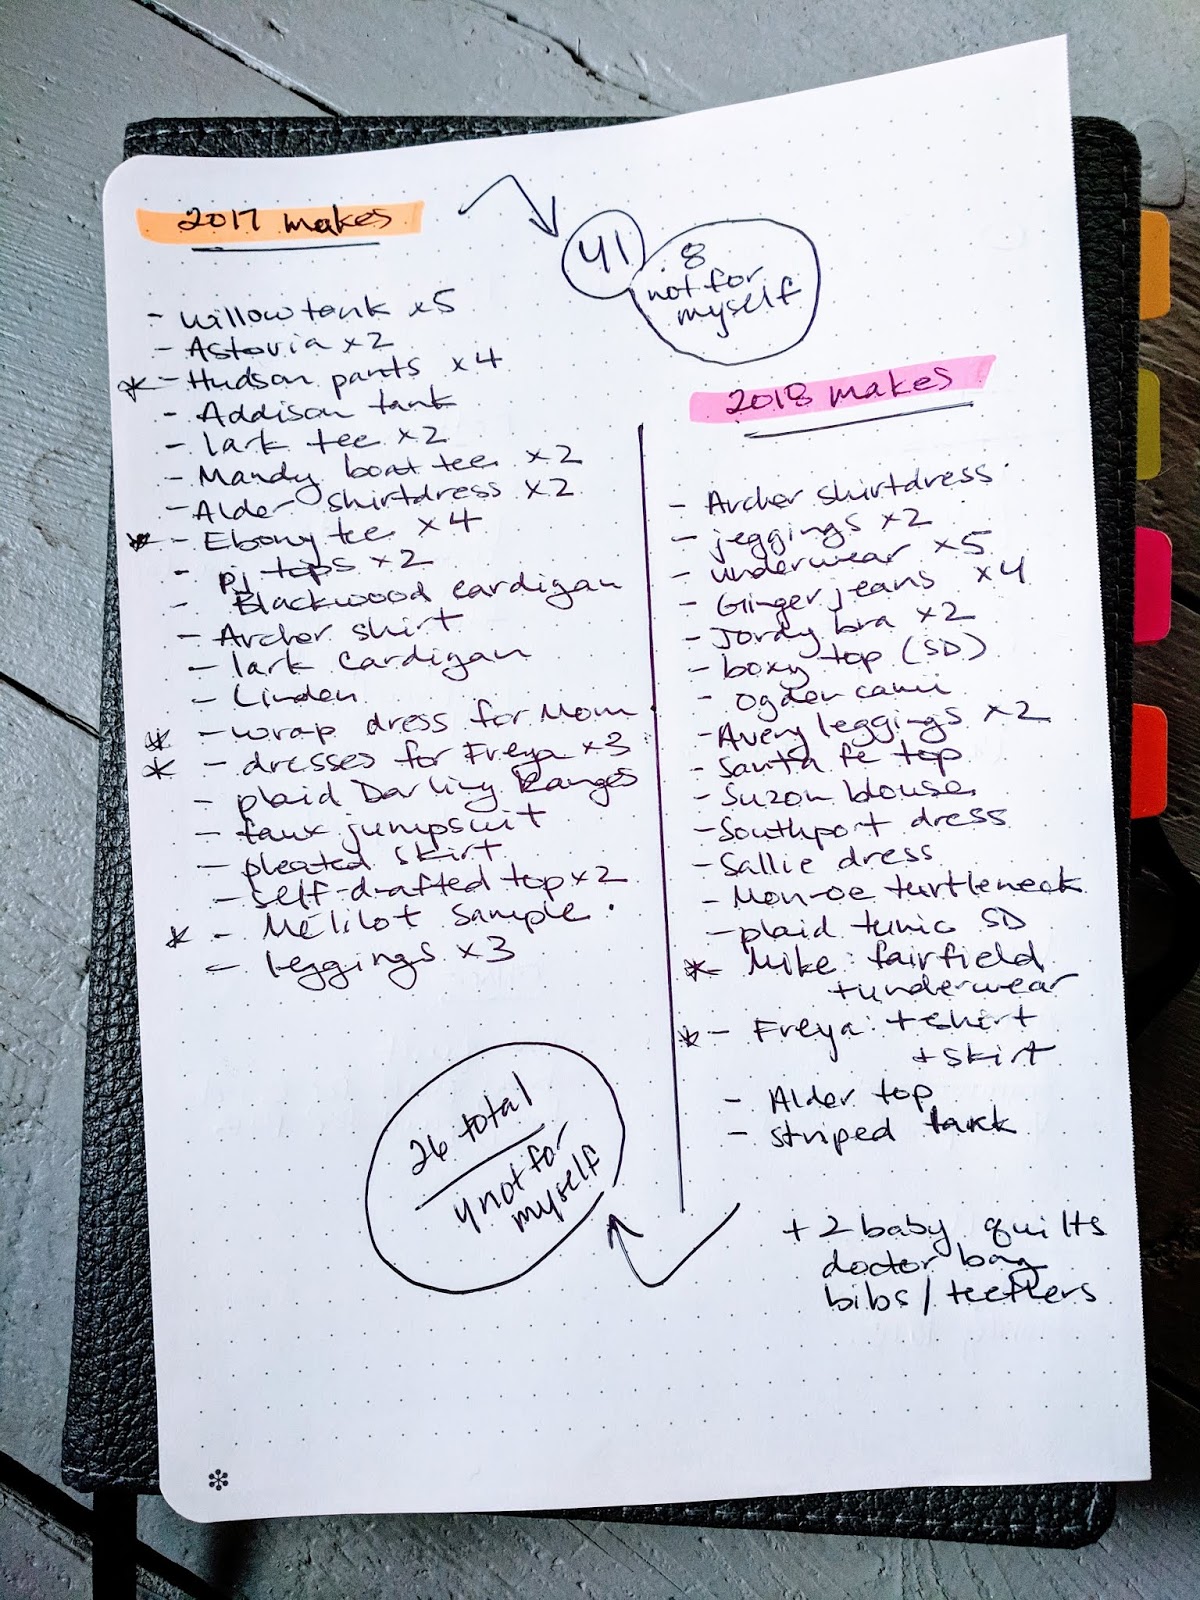 2017 makes
41
8
not for
myself
- Willow tank x5
- Astoria x2
* - Hudson pants x4
- Addison tank
- lark tee x2
- Mandy boat tee x2
- Alder shirtdress x2
* - Ebony tee x4
- pj tops x2
- Blackwood cardigan
- Archer shirt
- lark cardigan
- Linden
* - wrap dress for Mom
* - dresses for Freya x3
- plaid Darling Ranges
- faux jumpsuit
- pleated skirt
- self-drafted top x2
* - Mélilot sample.
- leggings x3
26 total
4 not for
myself
2018 makes
- Archer shirtdress
- jeggings x2
- underwear x5
- Ginger jeans x4
- Jordy bra x2
- boxy top (SD)
- Ogden cami
- Avery leggings x2
- Santa fe top
- Suzon blouse
- Southport dress
- Sallie dress
- Mon-oe turtleneck
- plaid tunic SD
* Mike: fairfield
+ underwear
* - Freya: tshirt
+ skirt
- Alder top
- striped tank
+ 2 baby quilts
doctor bag
bibs/teethers